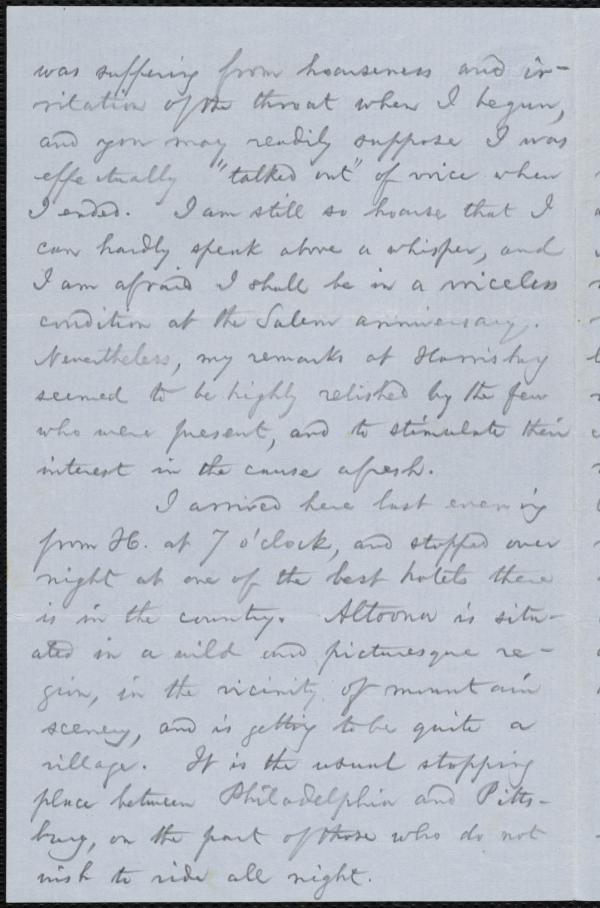 was suffering from hoarseness and ir-
ritation of the throat when I begun,
and you may readily suppose I was
effectually "talked out" of voice when
I ended. I am still so hoarse that I
can hardly speak above a whisper, and
I am afraid I shall be in a voiceless
condition at the Salem anniversary.
Nevertheless, my remarks at Harrisburg
seemed to be highly relished by the few
who were present, and to stimulate their
interest in the cause afresh.
I arrived here last evening
from H. at 7 o'clock, and stopped over
night at one of the best hotels there
is in the country. Altoona is situ-
ated in a wild and picturesque re-
gion, in the vicinity of mountain
scenery, and is getting to be quite a
village. It is the usual stopping
place between Philadelphia and Pitts-
burg, on the part of those who do not
wish to ride all night.